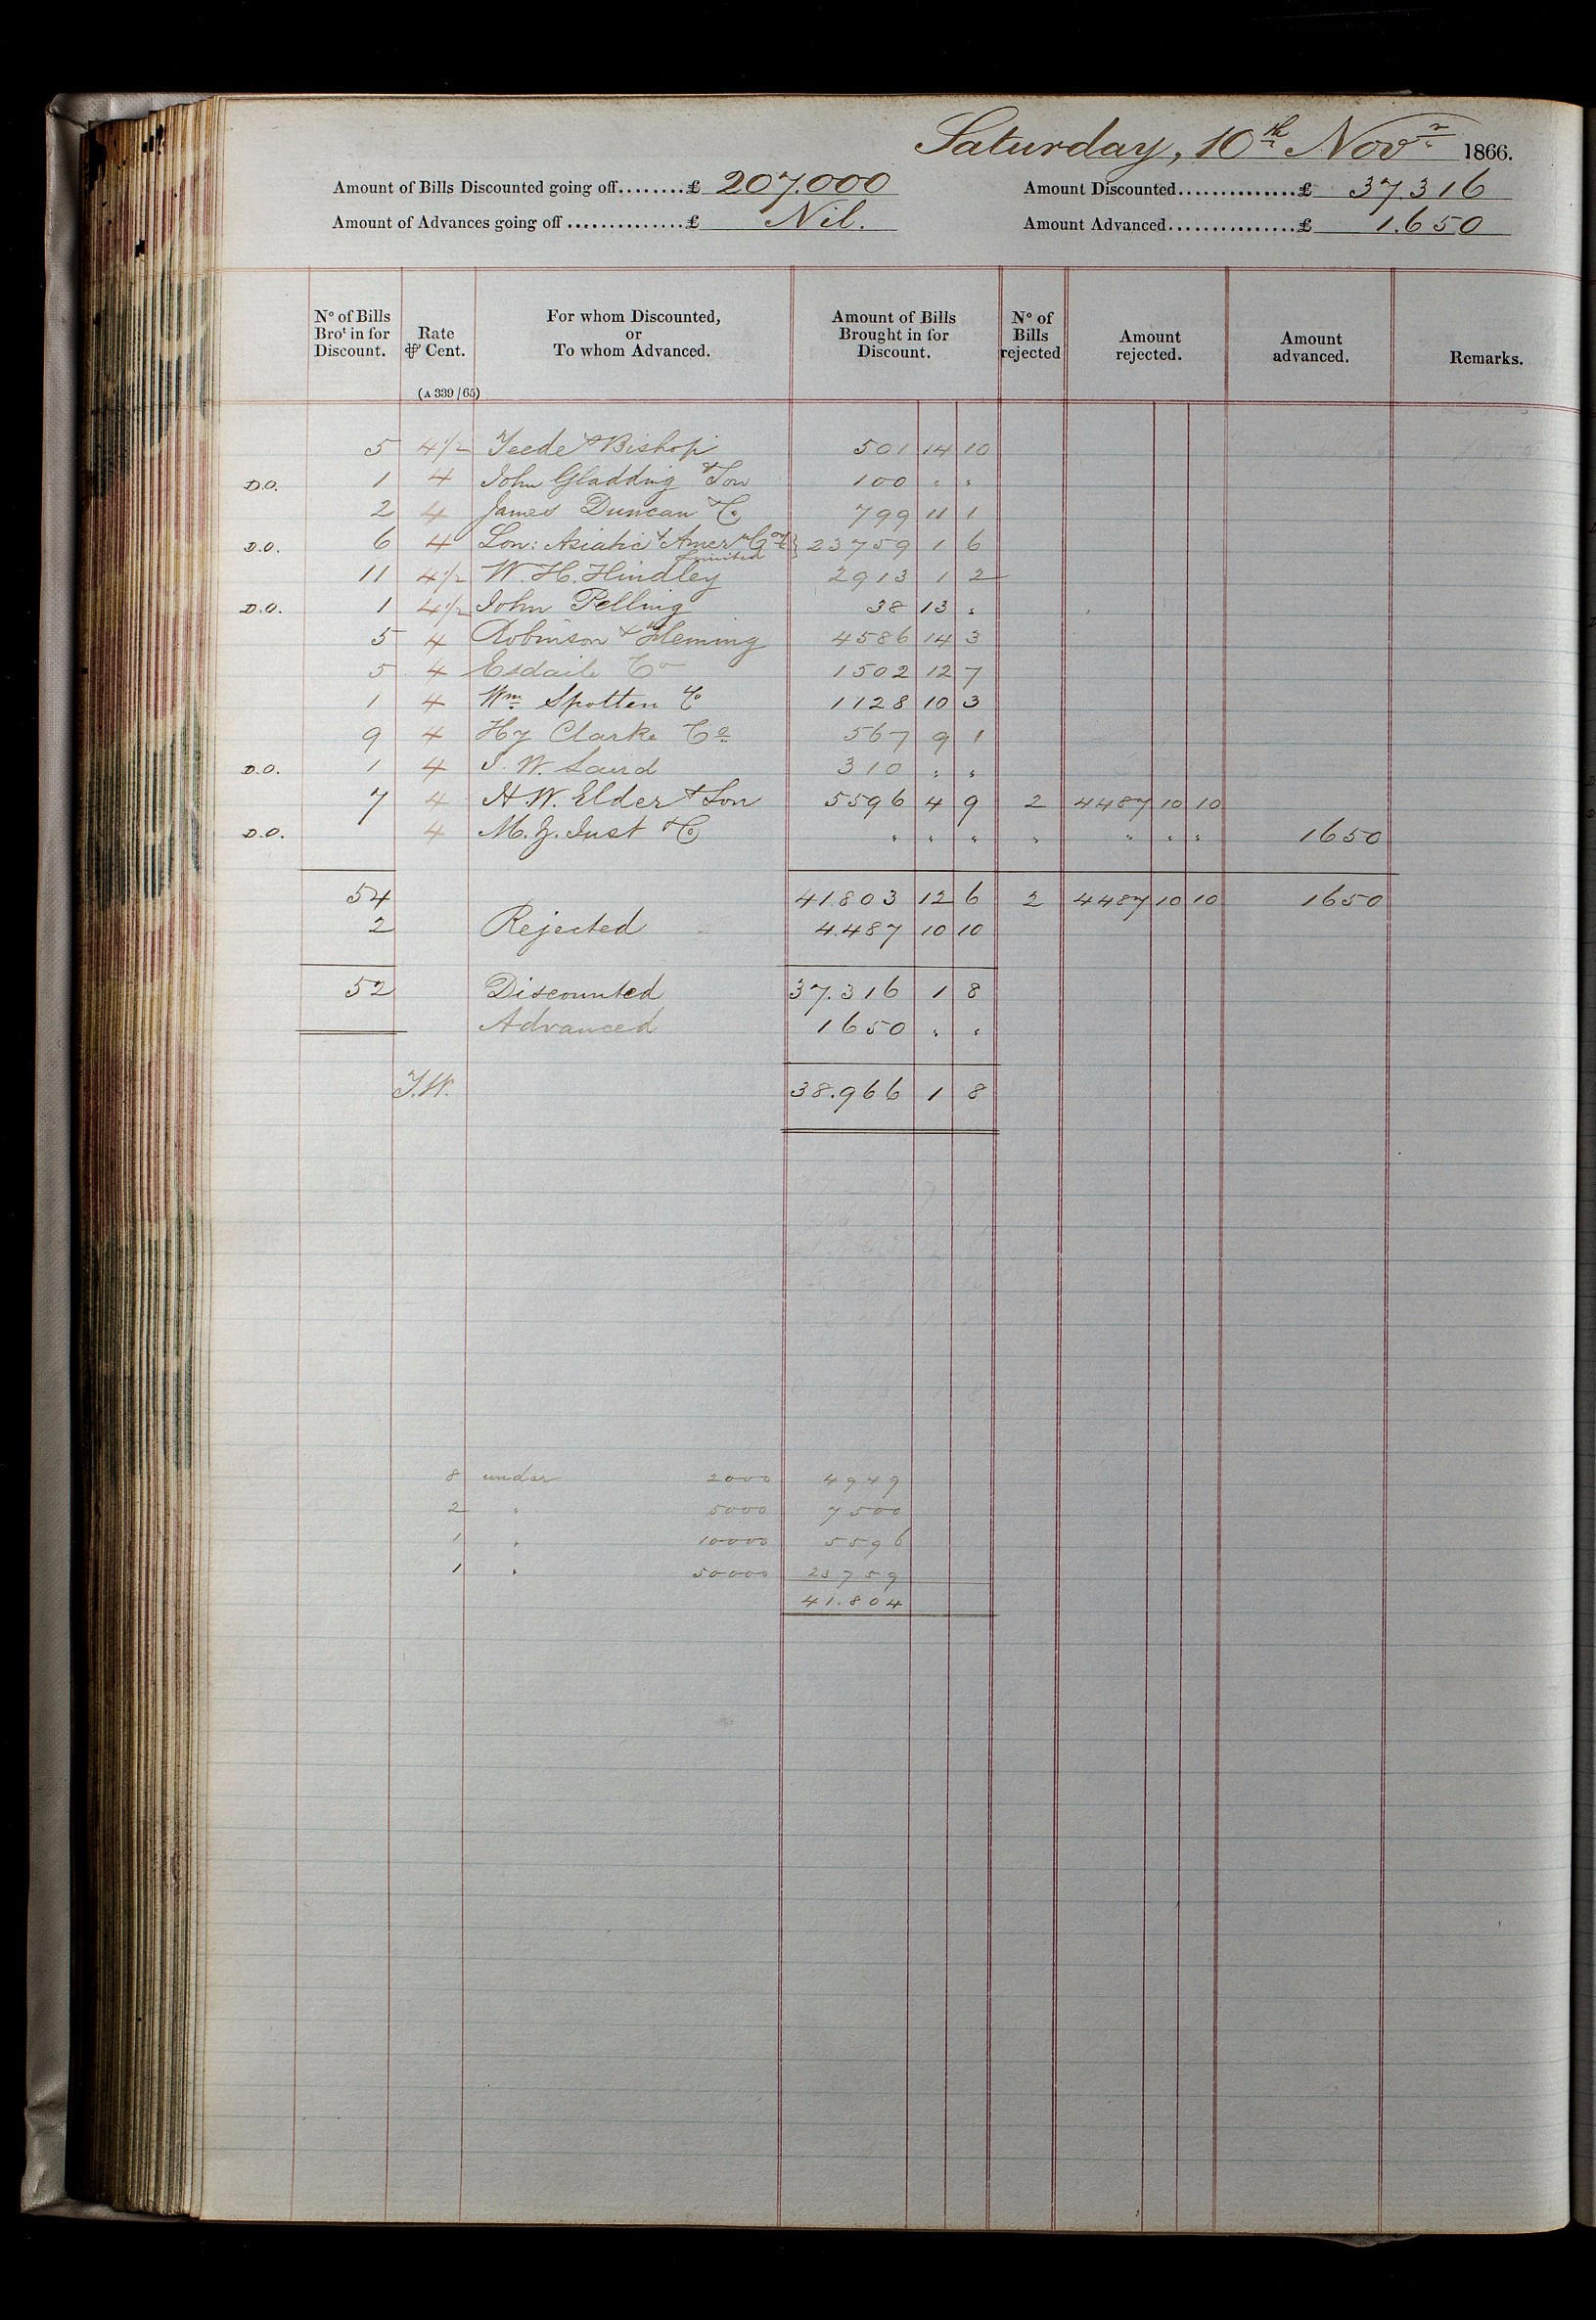 Saturday, 10th Novr 1866.
Amount of Bills Discounted going off........£ 207.000 Amount Discounted..............£ 37.316
Amount of Advances going off..............£ Nil. Amount Advanced...............£ 1.650
No of Bills Brot in for Discount. Rate ⅌ Cent. For whom Discounted, or To whom Advanced. Amount of Bills Brought in for Discount. No of Bills rejected Amount rejected. Amount advanced. Remarks.
(A 339/65)
5 4½ Teede & Bishop 501 14 10
D.O. 1 4 John Gladding & Son 100 " "
2 4 James Duncan & Co 799 11 1
D.O. 6 4 Lon: Asiatic & Amern Coy Limited } 23759 1 6
11 4½ W. H. Hindley 2913 1 2
D.O. 1 4½ John Pelling 38 13 "
5 4 Robinson & Fleming 4586 14 3
5 4 Esdaile Co 1502 12 7
1 4 Wm Spotten & Co 1128 10 3
9 4 Hy Clarke Co 567 9 1
D.O. 1 4 J. W. Laird 310 " "
7 4 H. W. Elder & Son 5596 4 9 2 4487 10 10
D.O. 4 M. Z. Just & Co " " " " " " " 1650
54 41.803 12 6 2 4487 10 10 1650
2 Rejected 4.487 10 10
52 Discounted 37.316 1 8
Advanced 1650 " "
T.W. 38.966 1 8
8 under 2000 4949
2 " 5000 7500
1 " 10000 5596
1 " 50000 23759
41.804